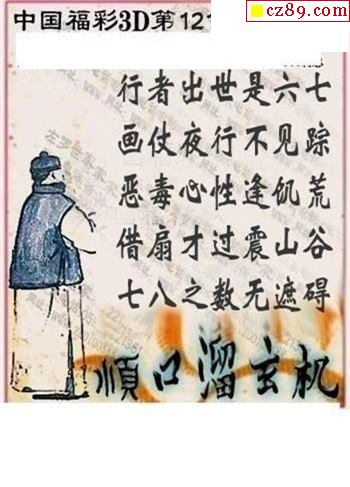 cz89.com
中国福彩3D第121
行者出世是六七
画仗夜行不见踪
恶毒心性逢饥荒
借扇才过震山谷
七八之数无遮碍
顺口溜玄机